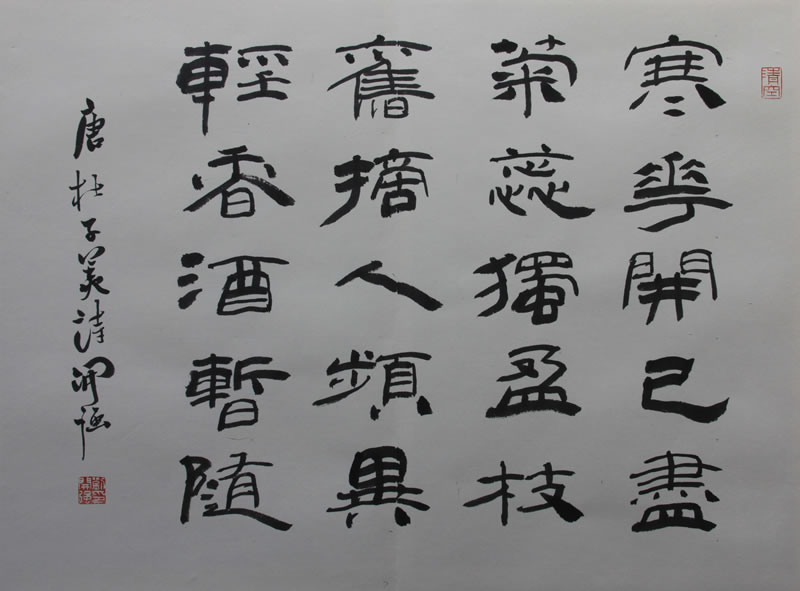 寒花開已盡
菊蕊獨盈枝
舊摘人頻異
輕香酒暫隨
唐杜子美詩開